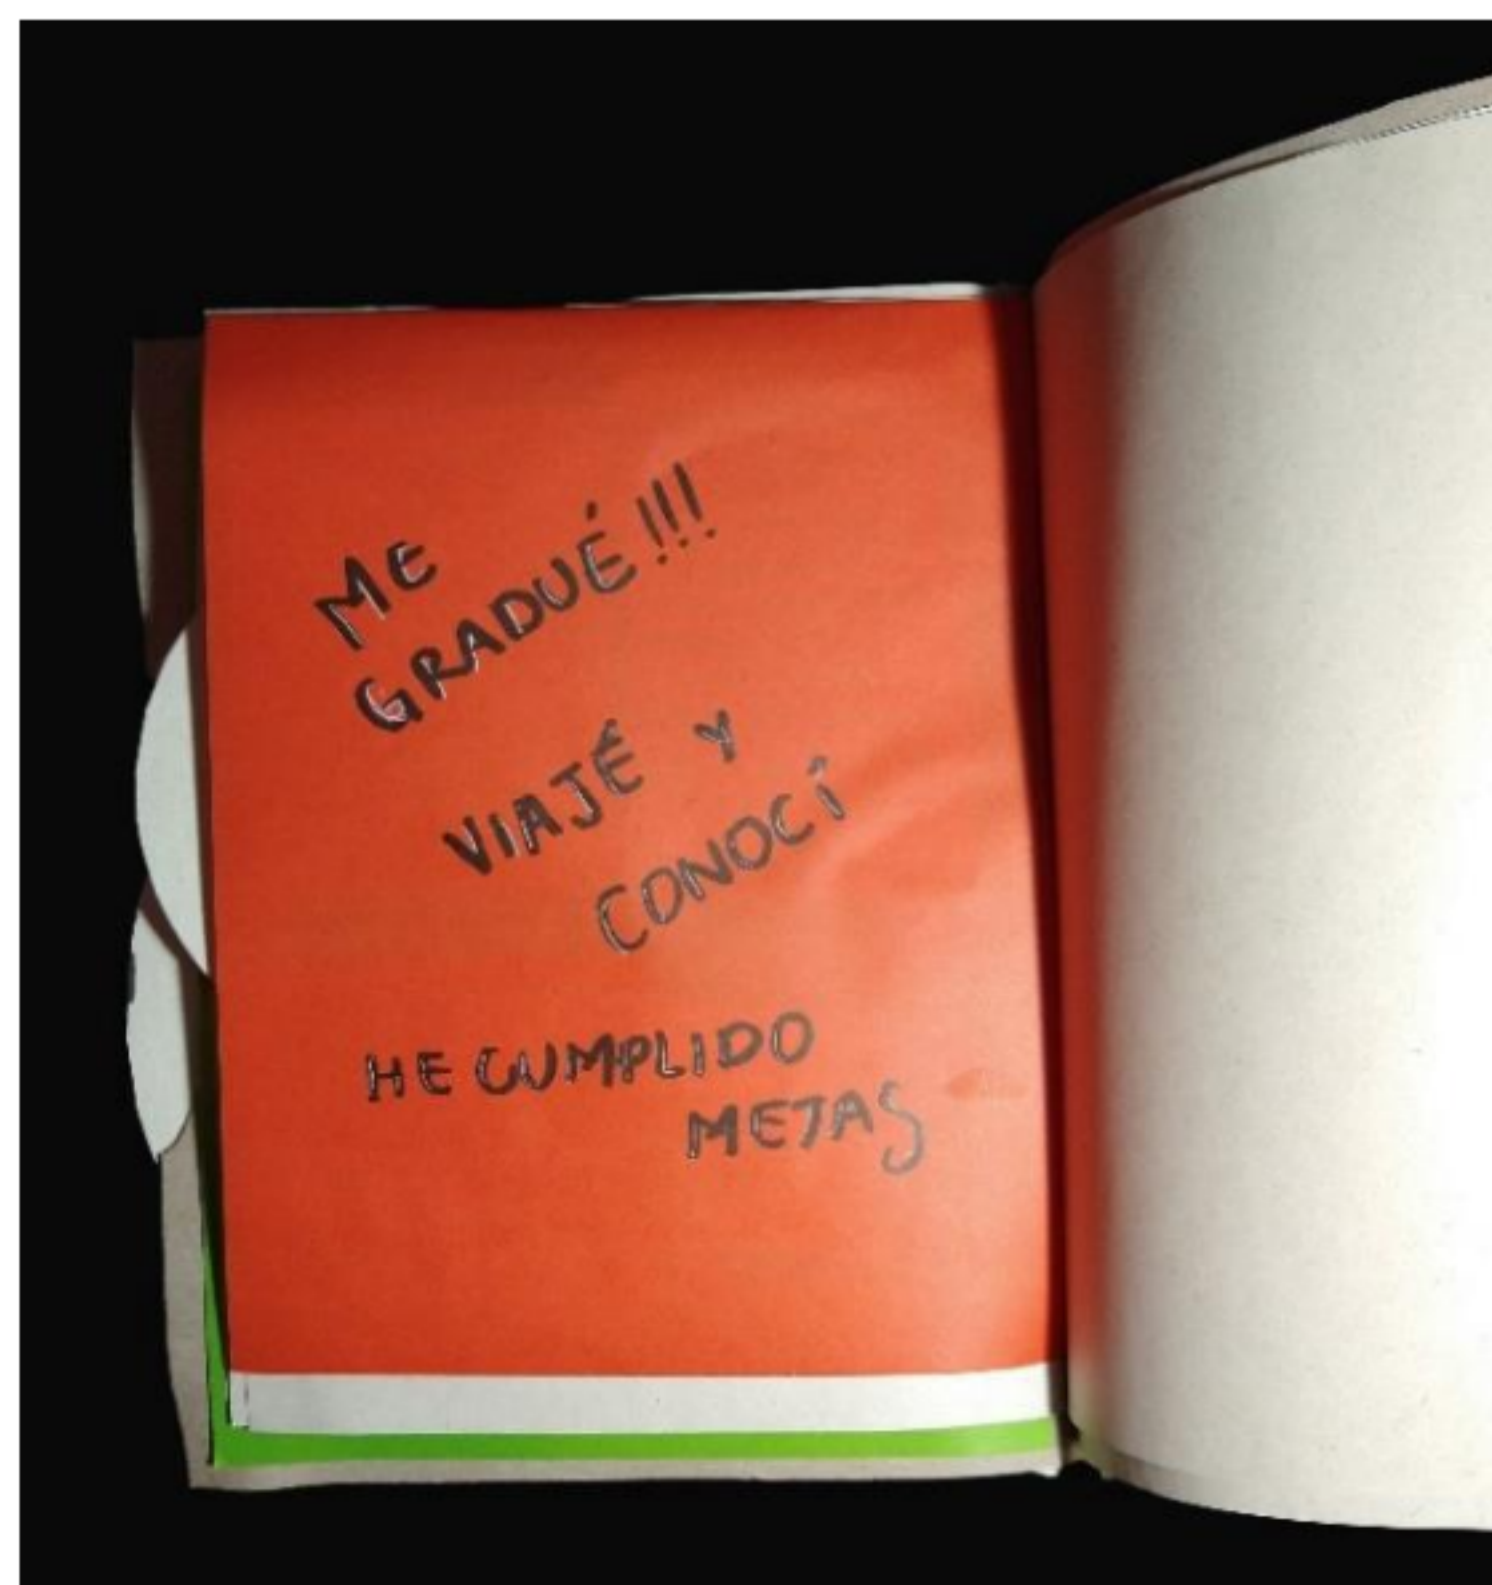 ME
GRADUÉ!!!
VIAJÉ Y
CONOCÍ
HE CUMPLIDO
METAS